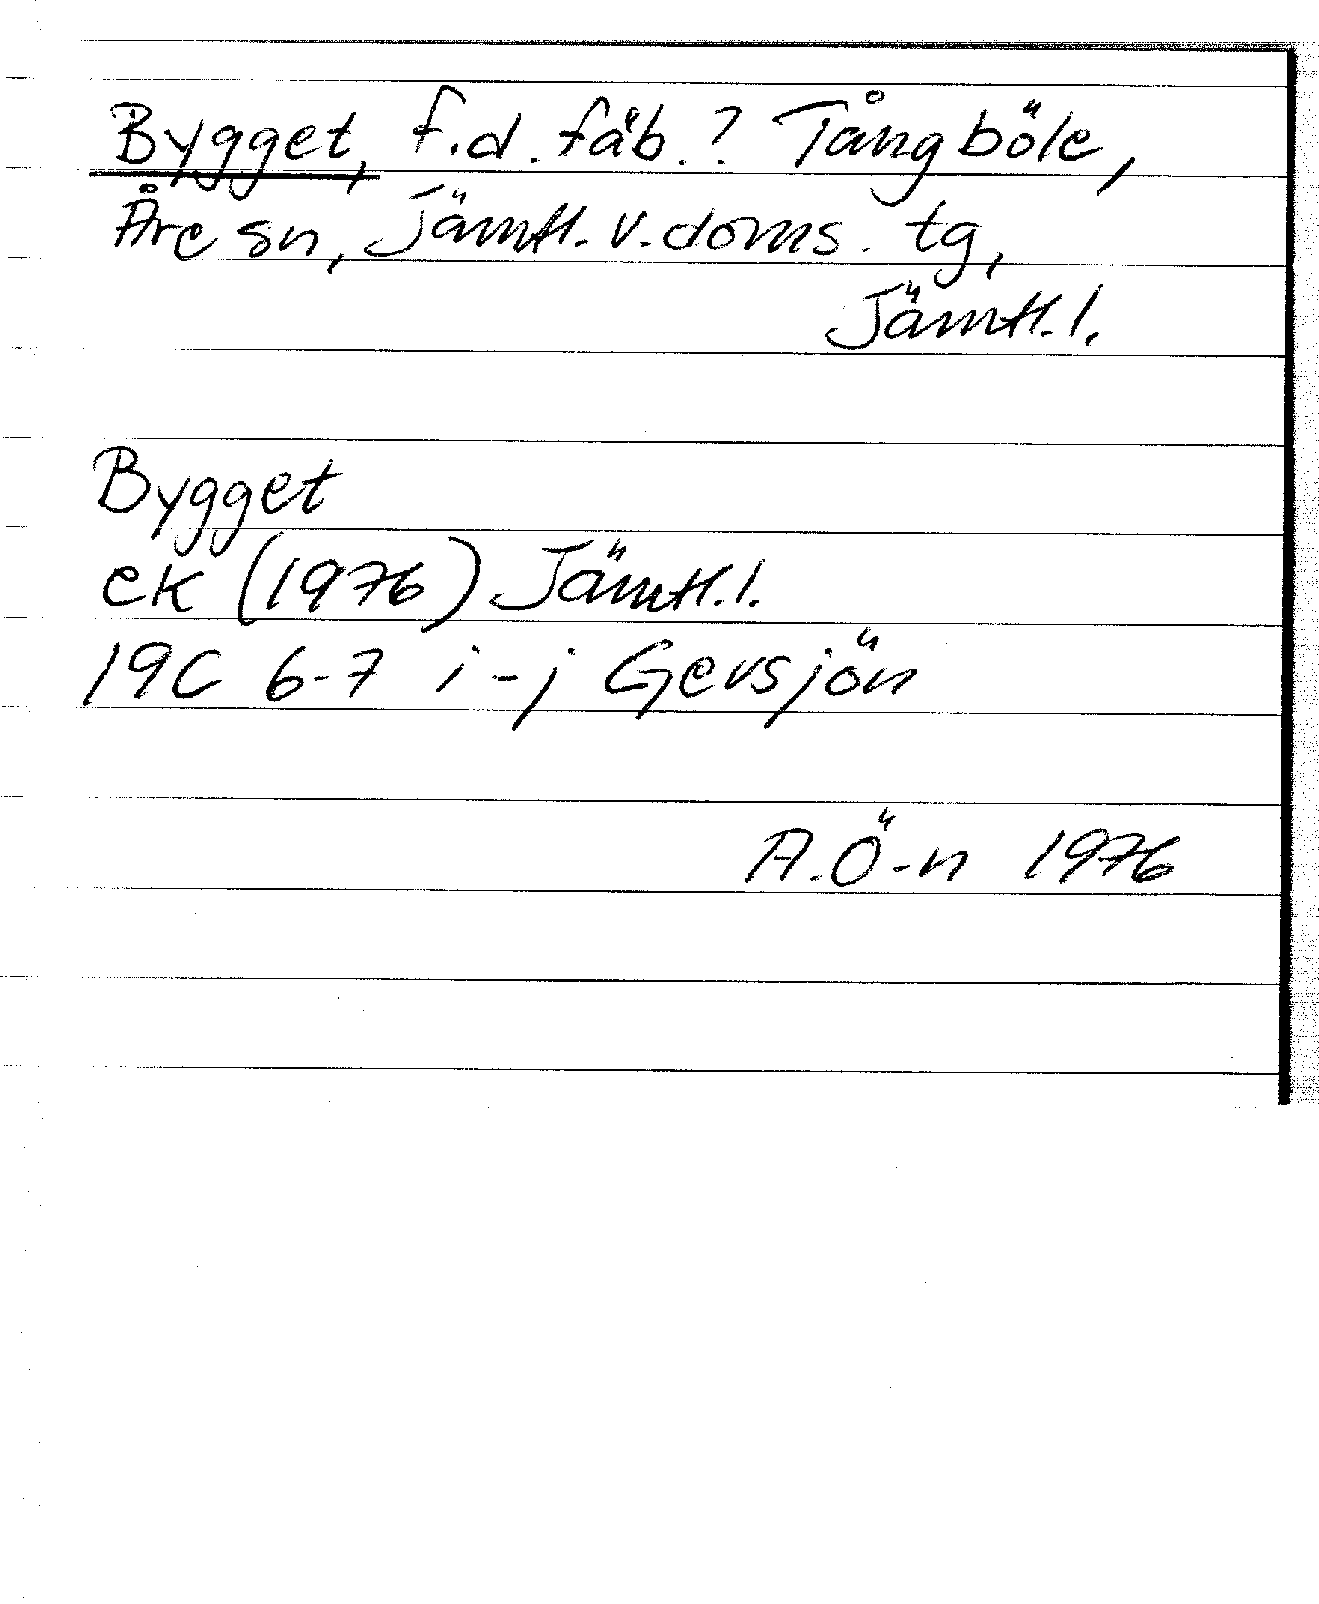 Bygget, f.d. fäb.? Tångböle,
Åre sn, Jämtl. v. doms. tg,
Jämtl. l.
Bygget
ek (1976) Jämtl. l.
19C 6-7 i-j Gevsjön
A.Ö-n 1976